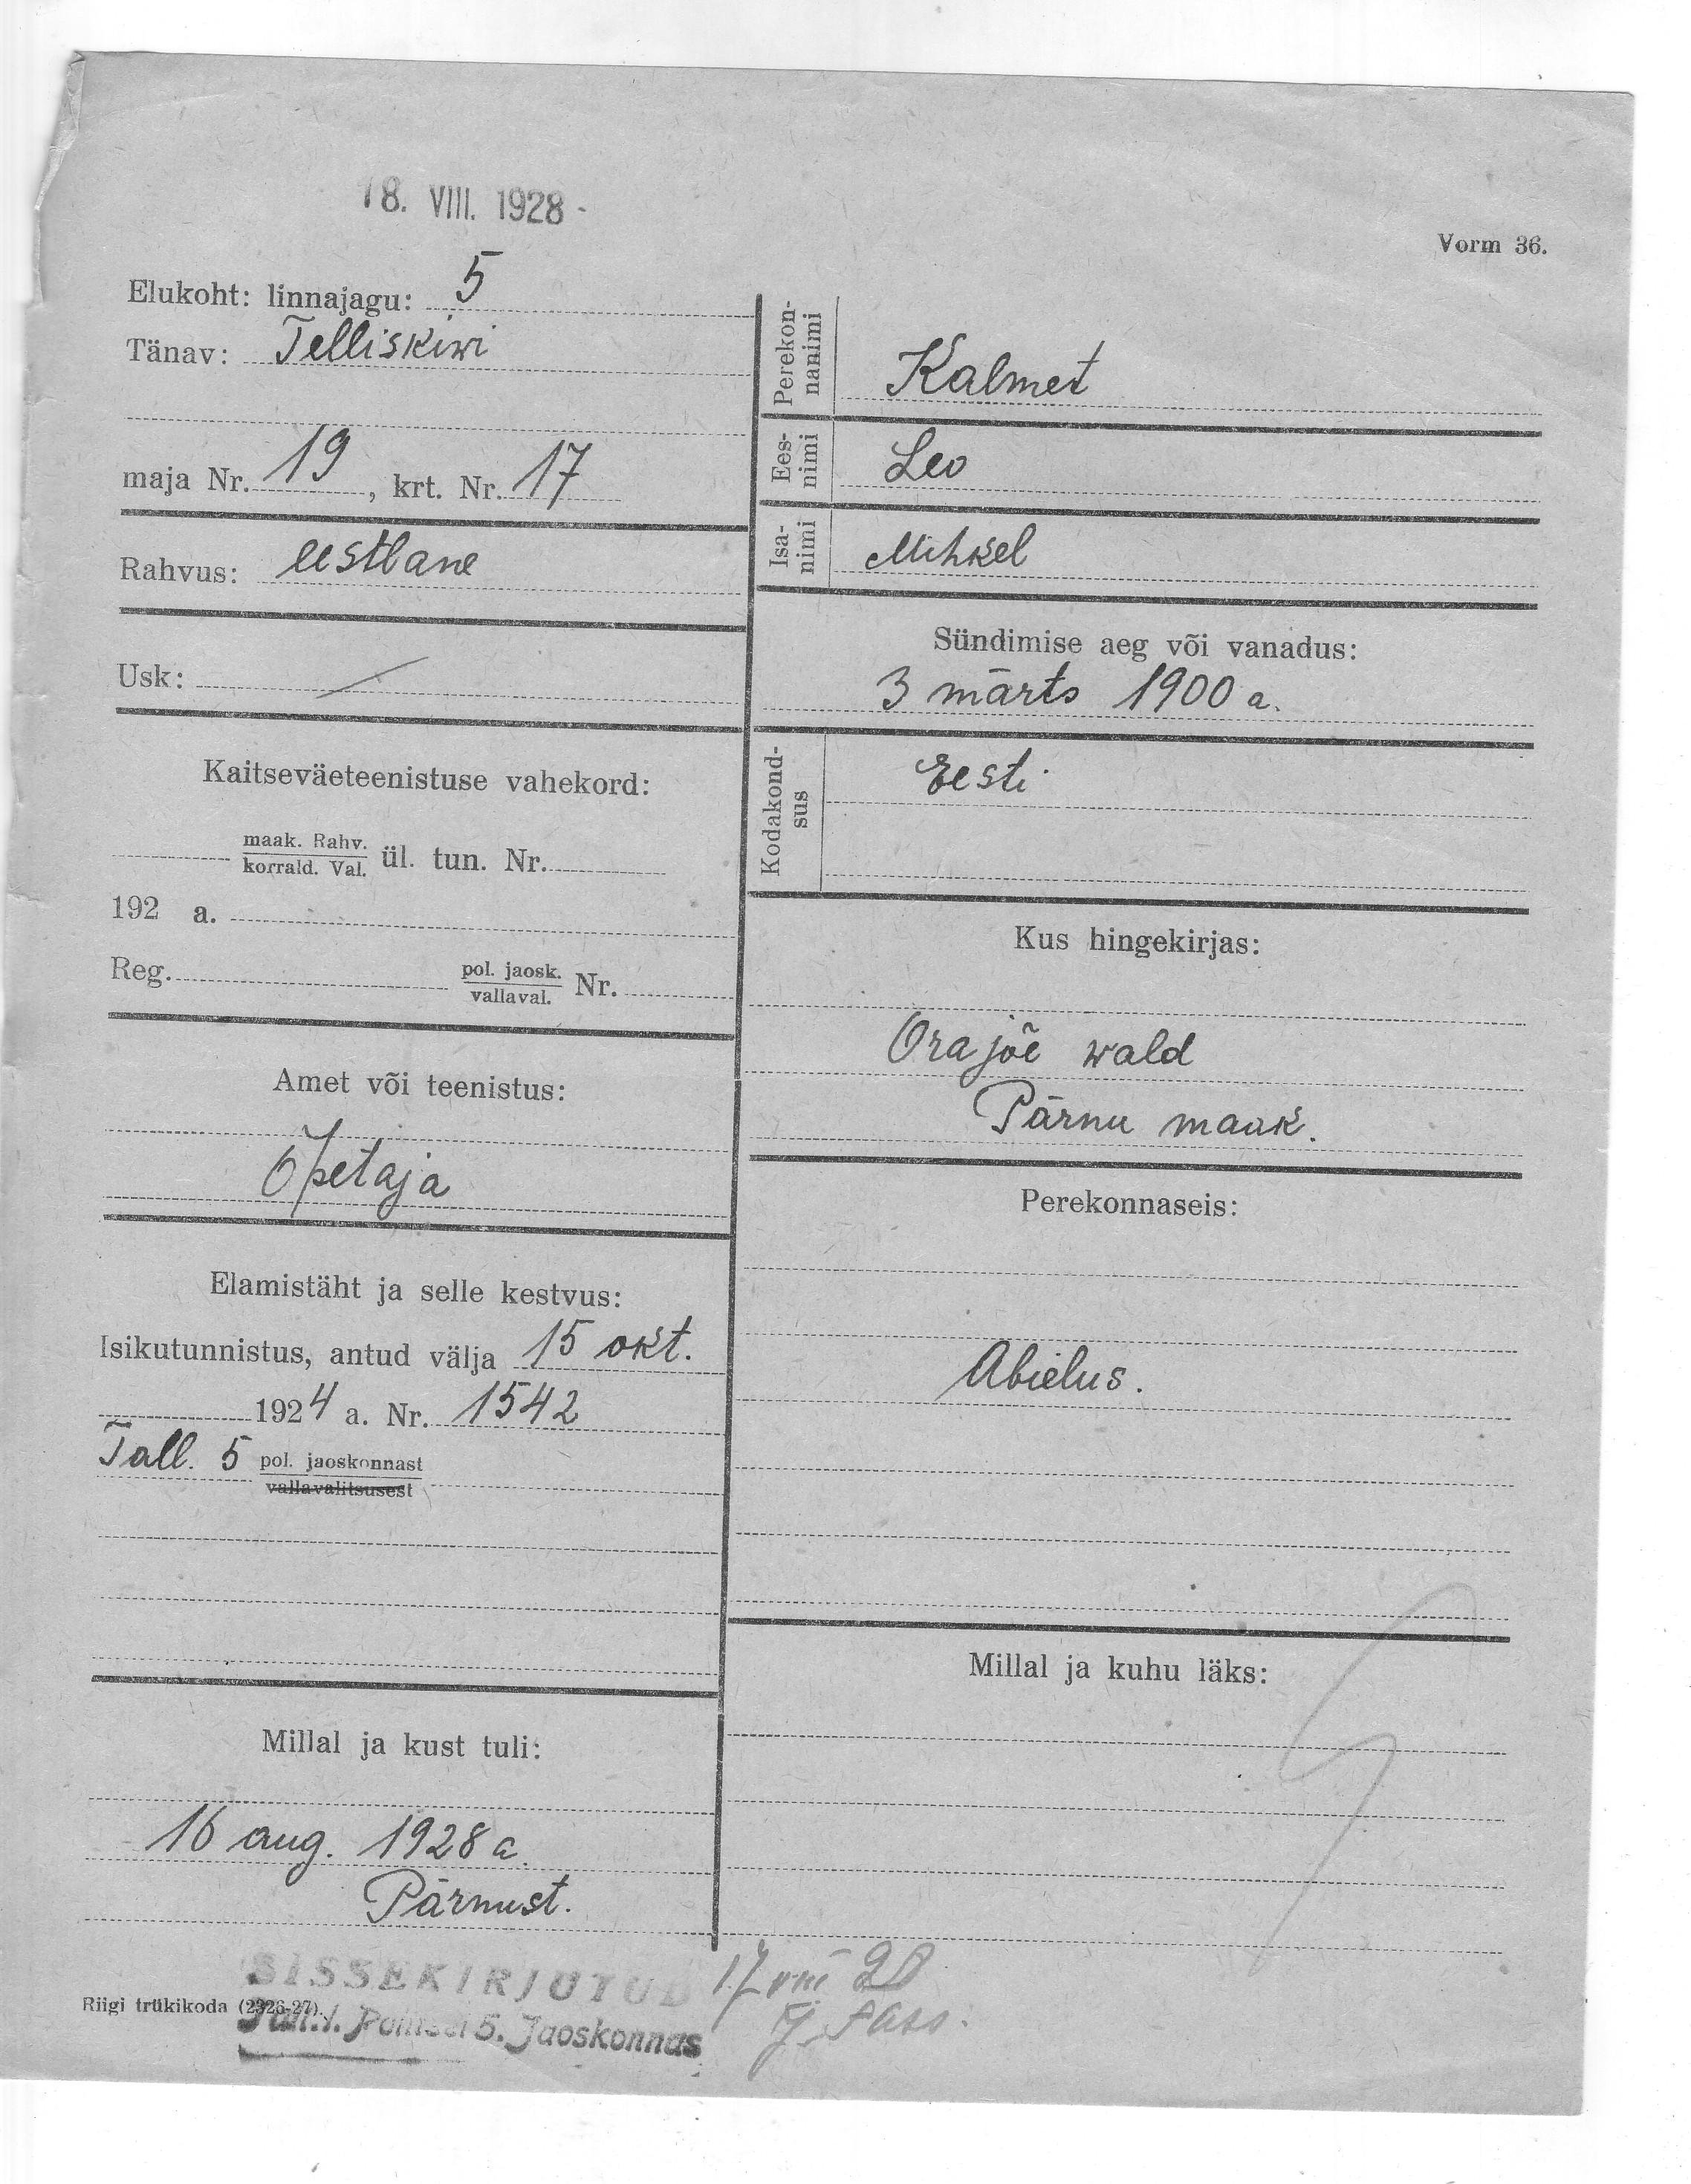 18. VIII. 1928
Vorm 36.
Elukoht: linnajagu: 5
Tänav: Telliskiwi
maja Nr. 19, krt. Nr. 17
Rahvus: eestlane
Usk: —
Kaitseväeteenistuse vahekord:
maak. Rahv.
korrald. Val. ül. tun. Nr.
192 a.
Reg. pol. jaosk.
vallaval. Nr.
Amet või teenistus:
Õpetaja
Elamistäht ja selle kestvus:
Isikutunnistus, antud välja 15 okt.
1924 a. Nr. 1542
Tall. 5 pol. jaoskonnast
vallavalitsusest
Millal ja kust tuli:
16 aug. 1928 a.
Pärnust.
Perekon-
nanimi
Kalmet
Ees-
nimi
Leo
Isa-
nimi
Mihkel
Sündimise aeg või vanadus:
3 märts 1900 a.
Kodakond-
sus
Eesti
Kus hingekirjas:
Orajõe wald
Pärnu maak.
Perekonnaseis:
Abielus.
Millal ja kuhu läks:
SISSEKIRJUTUD
17 VIII 28
Riigi trükikoda (2326-27).
Tall. Politsei 5. Jaoskonnas